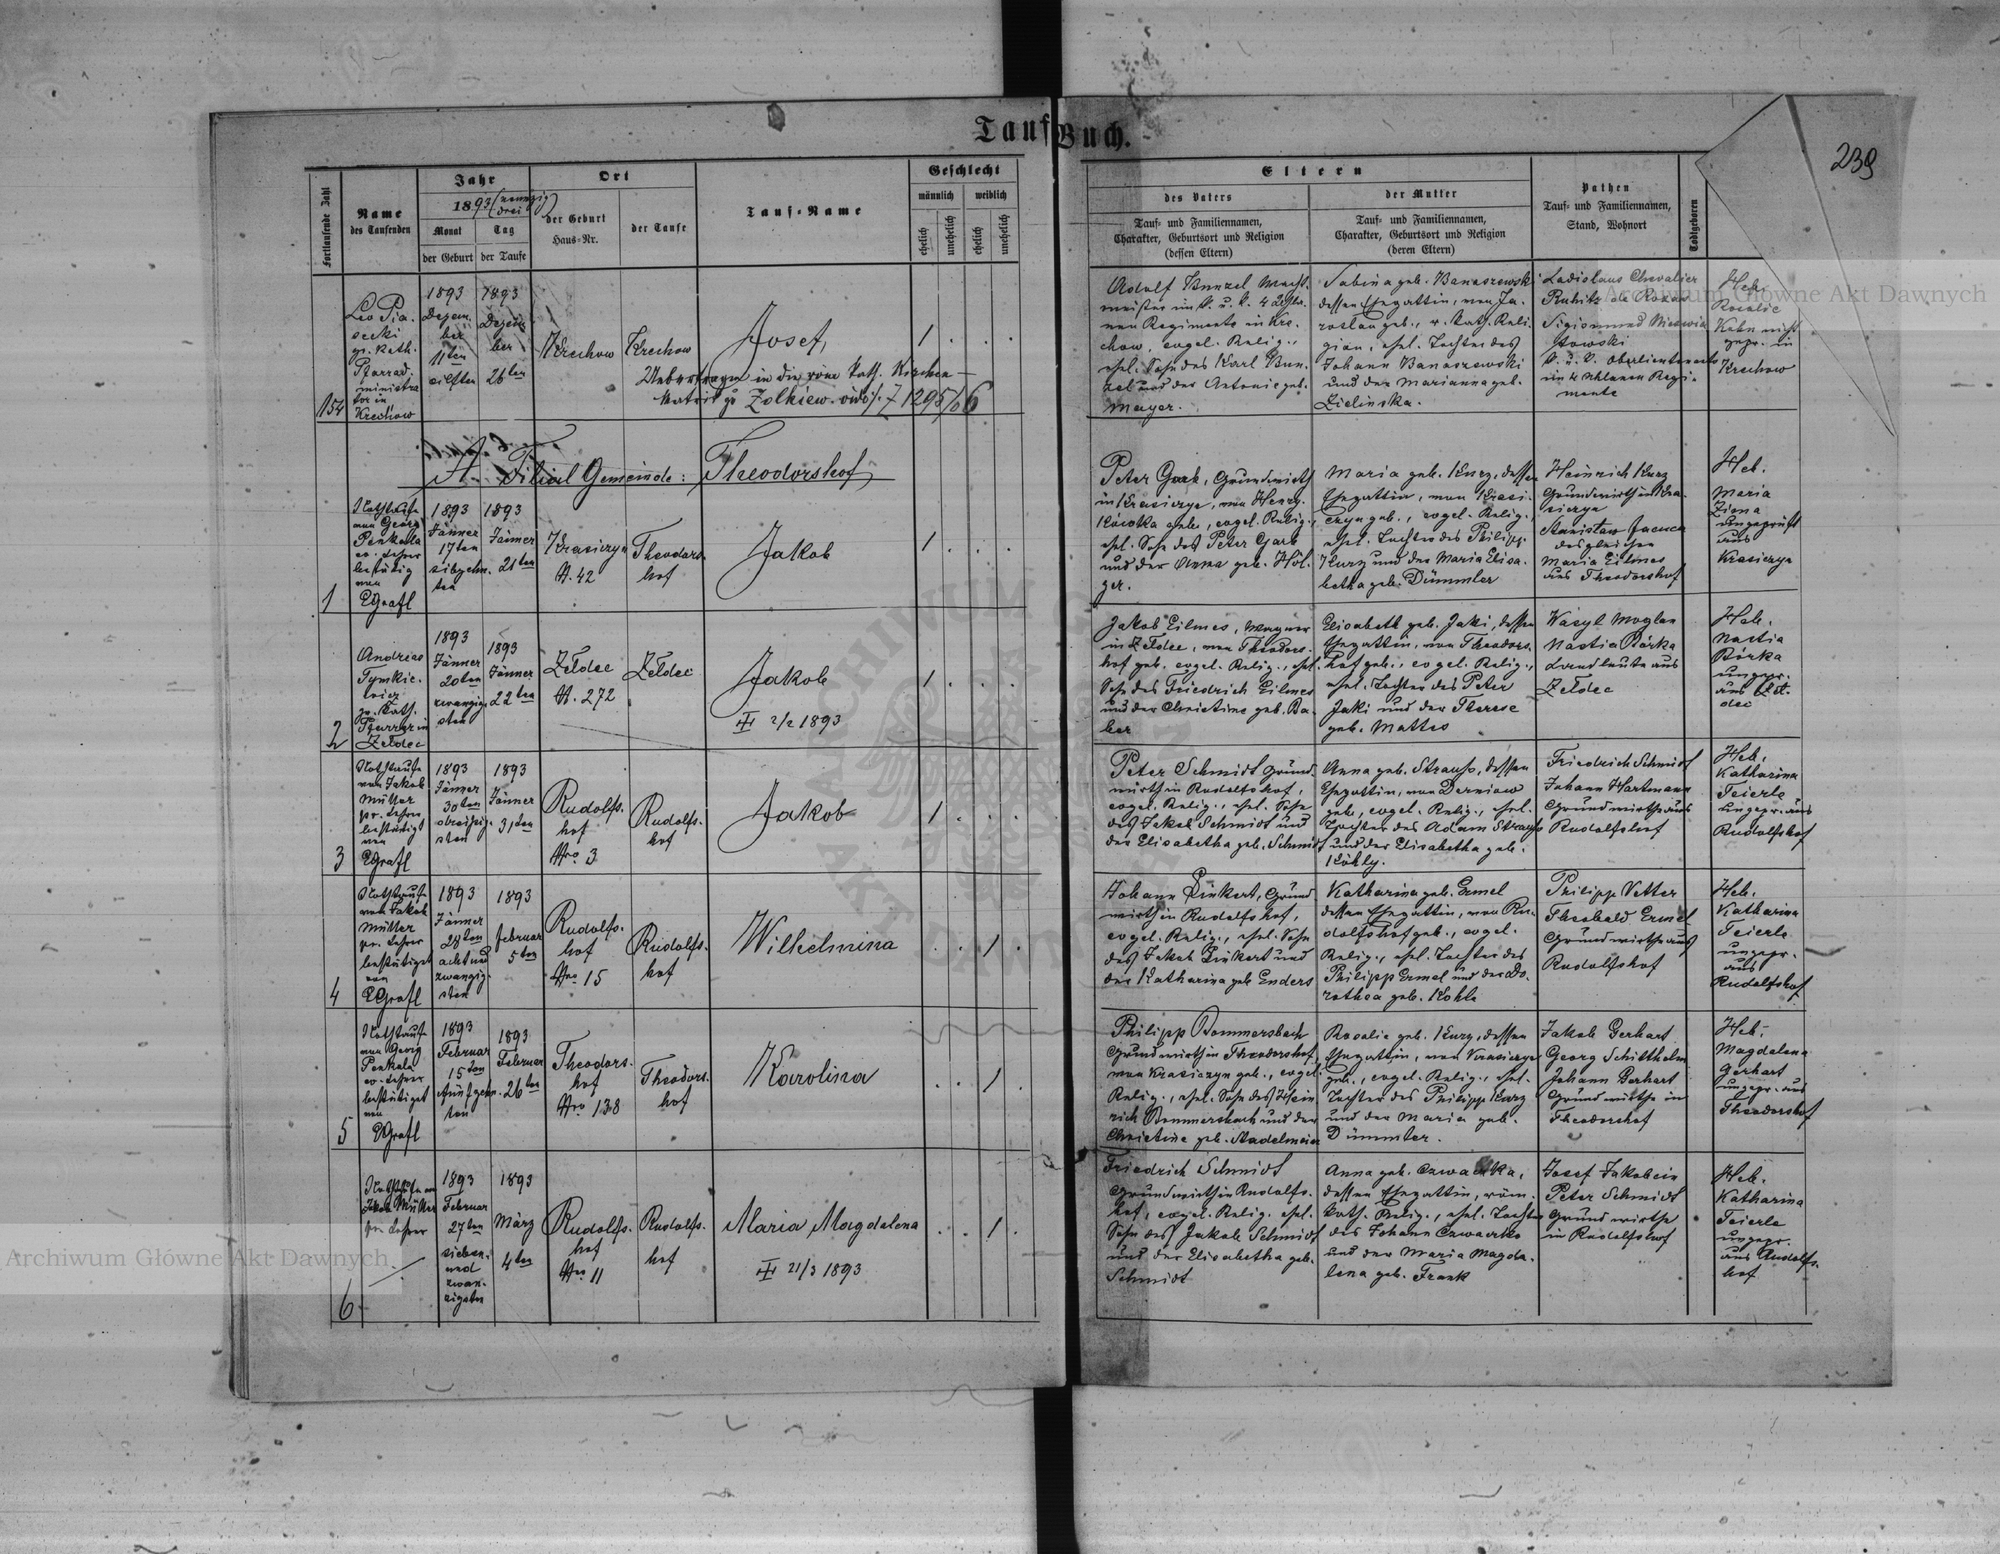 Tauf Buch.
239
Fortlaufende Zahl
Name
des Taufenden
Jahr
1893 (neunzig
drei)
Monat
Tag
der Geburt
der Taufe
Ort
der Geburt
Haus-Nr.
der Taufe
Tauf-Name
Geschlecht
männlich
weiblich
ehelich
unehelich
ehelich
unehelich
Eltern
des Vaters
Tauf- und Familiennamen,
Charakter, Geburtsort und Religion
(dessen Eltern)
der Mutter
Tauf- und Familiennamen,
Charakter, Geburtsort und Religion
(deren Eltern)
Pathen
Tauf- und Familiennamen,
Stand, Wohnort
Todtgeboren
154
Leo Pia-
secki
gr. kath.
Pfarrad-
ministra
tor in
Krechow
1893
Dezem-
ber
11ten
eilften
1893
Dezem
ber
26ten
Krechow
Krechow
Josef,
1 . . .
Uebertragen in die röm. kath. Kirchen-
Matrik zu Zolkiew.
1295/06
Adolf Kunzel Wacht-
meister im k. u. k. 4 Uhla-
nen Regimente in Kre-
chow, evgel. Relig.,
ehel. Sohn des Karl Kun-
zel und der Antonie geb.
Mayer.
Sabina geb. Banaszewski
dessen Ehegattin, von Ja-
roslau geb., r. kath. Reli-
gion, ehel. Tochter des
Johann Banaszewski
und der Marianna geb.
Zielinska.
Ladislaus Chevalier
Rubitz de Rokas
Sigismund
k. u. k. Oberlieutenants
im 4 Uhlanen Regi-
mente
Heb.
Rosalie
Kuhn nicht
gepr. in
Krechow
A. Filial Gemeinde: Theodorshof
1
Nothtaufe
von Georg
Penkala
ev. Lehrer
bestätig
von
EGrafl
1893
Jänner
17ten
siebzehn-
ten
1893
Jänner
21ten
Krasiczyn
N. 42
Theodors-
hof
Jakob
1 . . .
Peter Gark, Grundwirth
in Krasiczyn, von Henry-
kówka geb., evgel. Relig.,
ehel. Sohn des Peter Gark
und der Anna geb. Höl-
zer.
Maria geb. Kurz, dessen
Ehegattin, von Krasi-
czyn geb., evgel. Relig.,
ehel. Tochter des Philipp
Kurz und der Maria Elisa-
betha geb. Dümmler
Heinrich Kurz
Grundwirth in Kra-
siczyn
Stanislav Jacuca
desgleichen
Maria Eilmes
aus Theodorshof
Heb.
Maria
Zioma
ungeprüft
aus
Krasiczyn
2
Andreas
Tymkie-
wicz
gr. kath.
Pfarrer in
Zełdec
1893
Jänner
20ten
zwanzig-
sten
1893
Jänner
22ten
Zełdec
N. 272
Zełdec
Jakob
2/2 1893
1 . . .
Jakob Eilmes, Wagner
in Zełdec, von Theodors-
hof geb. evgel. Relig., ehel.
Sohn des Friedrich Eilmes
und der Christine geb. Ba-
ber
Elisabeth geb. Jaki, dessen
Ehegattin, von Theodors-
hof geb., evgel. Relig.,
ehel. Tochter des Peter
Jaki und der Therese
geb. Mattes
Wasyl Moglan
Nastia Bórka
Landleute aus
Zełdec
Heb.
Nastia
Bórka
ungepr.
aus Zeł-
dec
3
Nothtaufe
von Jakob
Müller
pr. Lehrer
bestätigt
von
EGrafl
1893
Jänner
30ten
dreissig-
sten
1893
Jänner
31ten
Rudolfs-
hof
Nro 3
Rudolfs-
hof
Jakob
1 . . .
Peter Schmidt Grund-
wirth in Rudolfshof,
evgel. Relig., ehel. Sohn
des Jakob Schmidt und
der Elisabetha geb. Schmidt
Anna geb. Strauss, dessen
Ehegattin, von Derniow
geb., evgel. Relig., ehel.
Tochter des Adam Strauss
und der Elisabetha geb.
Köhly.
Friedrich Schmidt
Johann Hartmann
Grundwirthe aus
Rudolfshof
Heb.
Katharina
Feierle
ungepr. aus
Rudolfshof
4
Nothtauf
von Jakob
Müller
pr. Lehrer
bestätiget
von
EGrafl
1893
Jänner
28ten
acht und
zwanzig-
sten
1893
Februar
5ten
Rudolfs-
hof
Nro 15
Rudolfs-
hof
Wilhelmina
. . 1 .
Johann Linkert, Grund
wirth in Rudolfshof,
evgel. Relig., ehel. Sohn
des Jakob Linkert und
der Katharina geb Enders
Katharina geb. Ermel
dessen Ehegattin, von Ru-
dolfshof geb., evgel.
Relig., ehel. Tochter des
Philipp Ermel und der Do-
rothea geb. Kohle
Philipp Vetter
Theobald Ermel
Grundwirthe aus
Rudolfshof
Heb.
Katharina
Feierle
ungepr.
aus
Rudolfshof
5
Nothtauf
von Georg
Penkala
ev. Lehrer
bestätiget
von
EGrafl
1893
Februar
15ten
fünfzehn-
ten
1893
Februar
26ten
Theodors-
hof
Nro 138
Theodors-
hof
Karolina
. . 1 .
Philipp Bommersbach
Grundwirth in Theodorshof,
von Krasiczyn geb., evgel.
Relig., ehel. Sohn des Hein
rich Bommersbach und der
Christine geb. Stadelmeier
Rosalie geb. Kurz, dessen
Ehegattin, von Krasiczyn
geb., evgel. Relig., ehel.
Tochter des Philipp Kurz
und der Maria geb.
Dümmler.
Jakob Gerhart
Georg Schitthelm
Johann Gerhart
Grundwirthe in
Theodorshof
Heb.
Magdalena
Gerhart
ungepr. aus
Theodorshof
6.
Nothtaufe von
Jakob Müller
pr. Lehrer
1893
Februar
27ten
sieben-
und
zwan-
zigsten
1893
März
4ten
Rudolfs-
hof
Nro 11
Rudolfs-
hof
Maria Magdalena
21/3 1893
. . 1 .
Friedrich Schmidt
Grundwirth in Rudolfs-
hof, evgel. Relig. ehel.
Sohn des Jakob Schmidt
und der Elisabetha geb.
Schmidt
Anna geb. Czwaczka,
dessen Ehegattin, röm.
kath. Relig., ehel. Tochter
des Johann Czwaczka
und der Maria Magda-
lena geb. Frank
Josef Jakobein
Peter Schmidt
Grundwirthe
in Rudolfshof
Heb.
Katharina
Feierle
ungepr.
aus Rudolfs-
hof
Archiwum Główne Akt Dawnych
Archiwum Główne Akt Dawnych